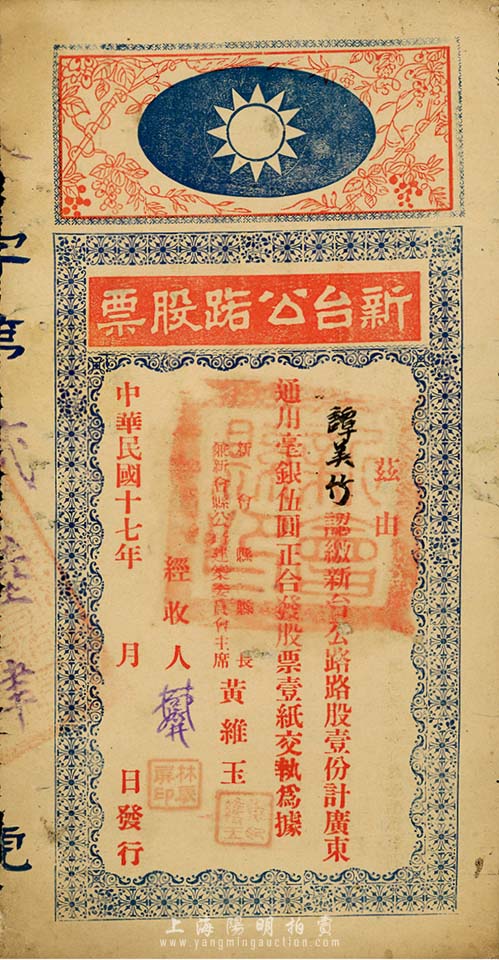 新台公路股票
茲由
譚美竹認繳新台公路路股壹份計廣東
通用毫銀伍圓正合發股票壹紙交執為據
新會縣縣長
兼新會縣公路建築委員會主席
黃維玉
經收人
中華民國十七年 月 日發行
字第
號
上海陽明拍賣
www.yangmingauction.com